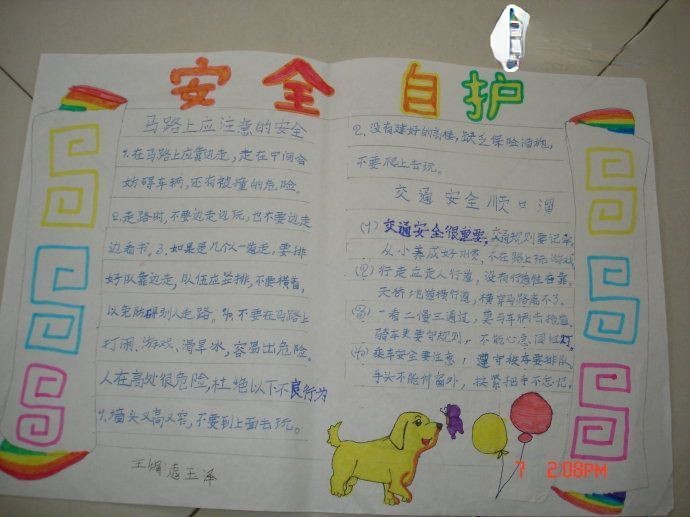 安全自护
马路上应注意的安全
1.在马路上应靠边走,走在中间会
妨碍车辆,还有被撞的危险。
2.走路时,不要边走边玩,也不要边走
边看书。3.如果是几个人一道走,要排
好队靠边走,队伍应竖排,不要横着,
以免防碍别人走路。不要在马路上
打闹、游戏、滑旱冰,容易出危险。
人在高处很危险,杜绝以下不良行为
1.墙头又高又窄,不要到上面去玩。
2.没有建好的高楼,缺乏保险措施,
不要爬上去玩。
交通安全顺口溜
(1)交通安全很重要,交通规则要记牢,
从小养成好习惯,不在路上玩游戏
(2)行走应走人行道,没有行道往右靠,
天桥地道横行道,横穿马路离不了。
(3)一看二慢三通过,莫与车辆去抢道。
骑车更要守规则,不能心急闯红灯。
(4)乘车安全要注意,遵守乘车要排队
手头不能伸窗外,扶紧把手不忘记。
7 2:08PM